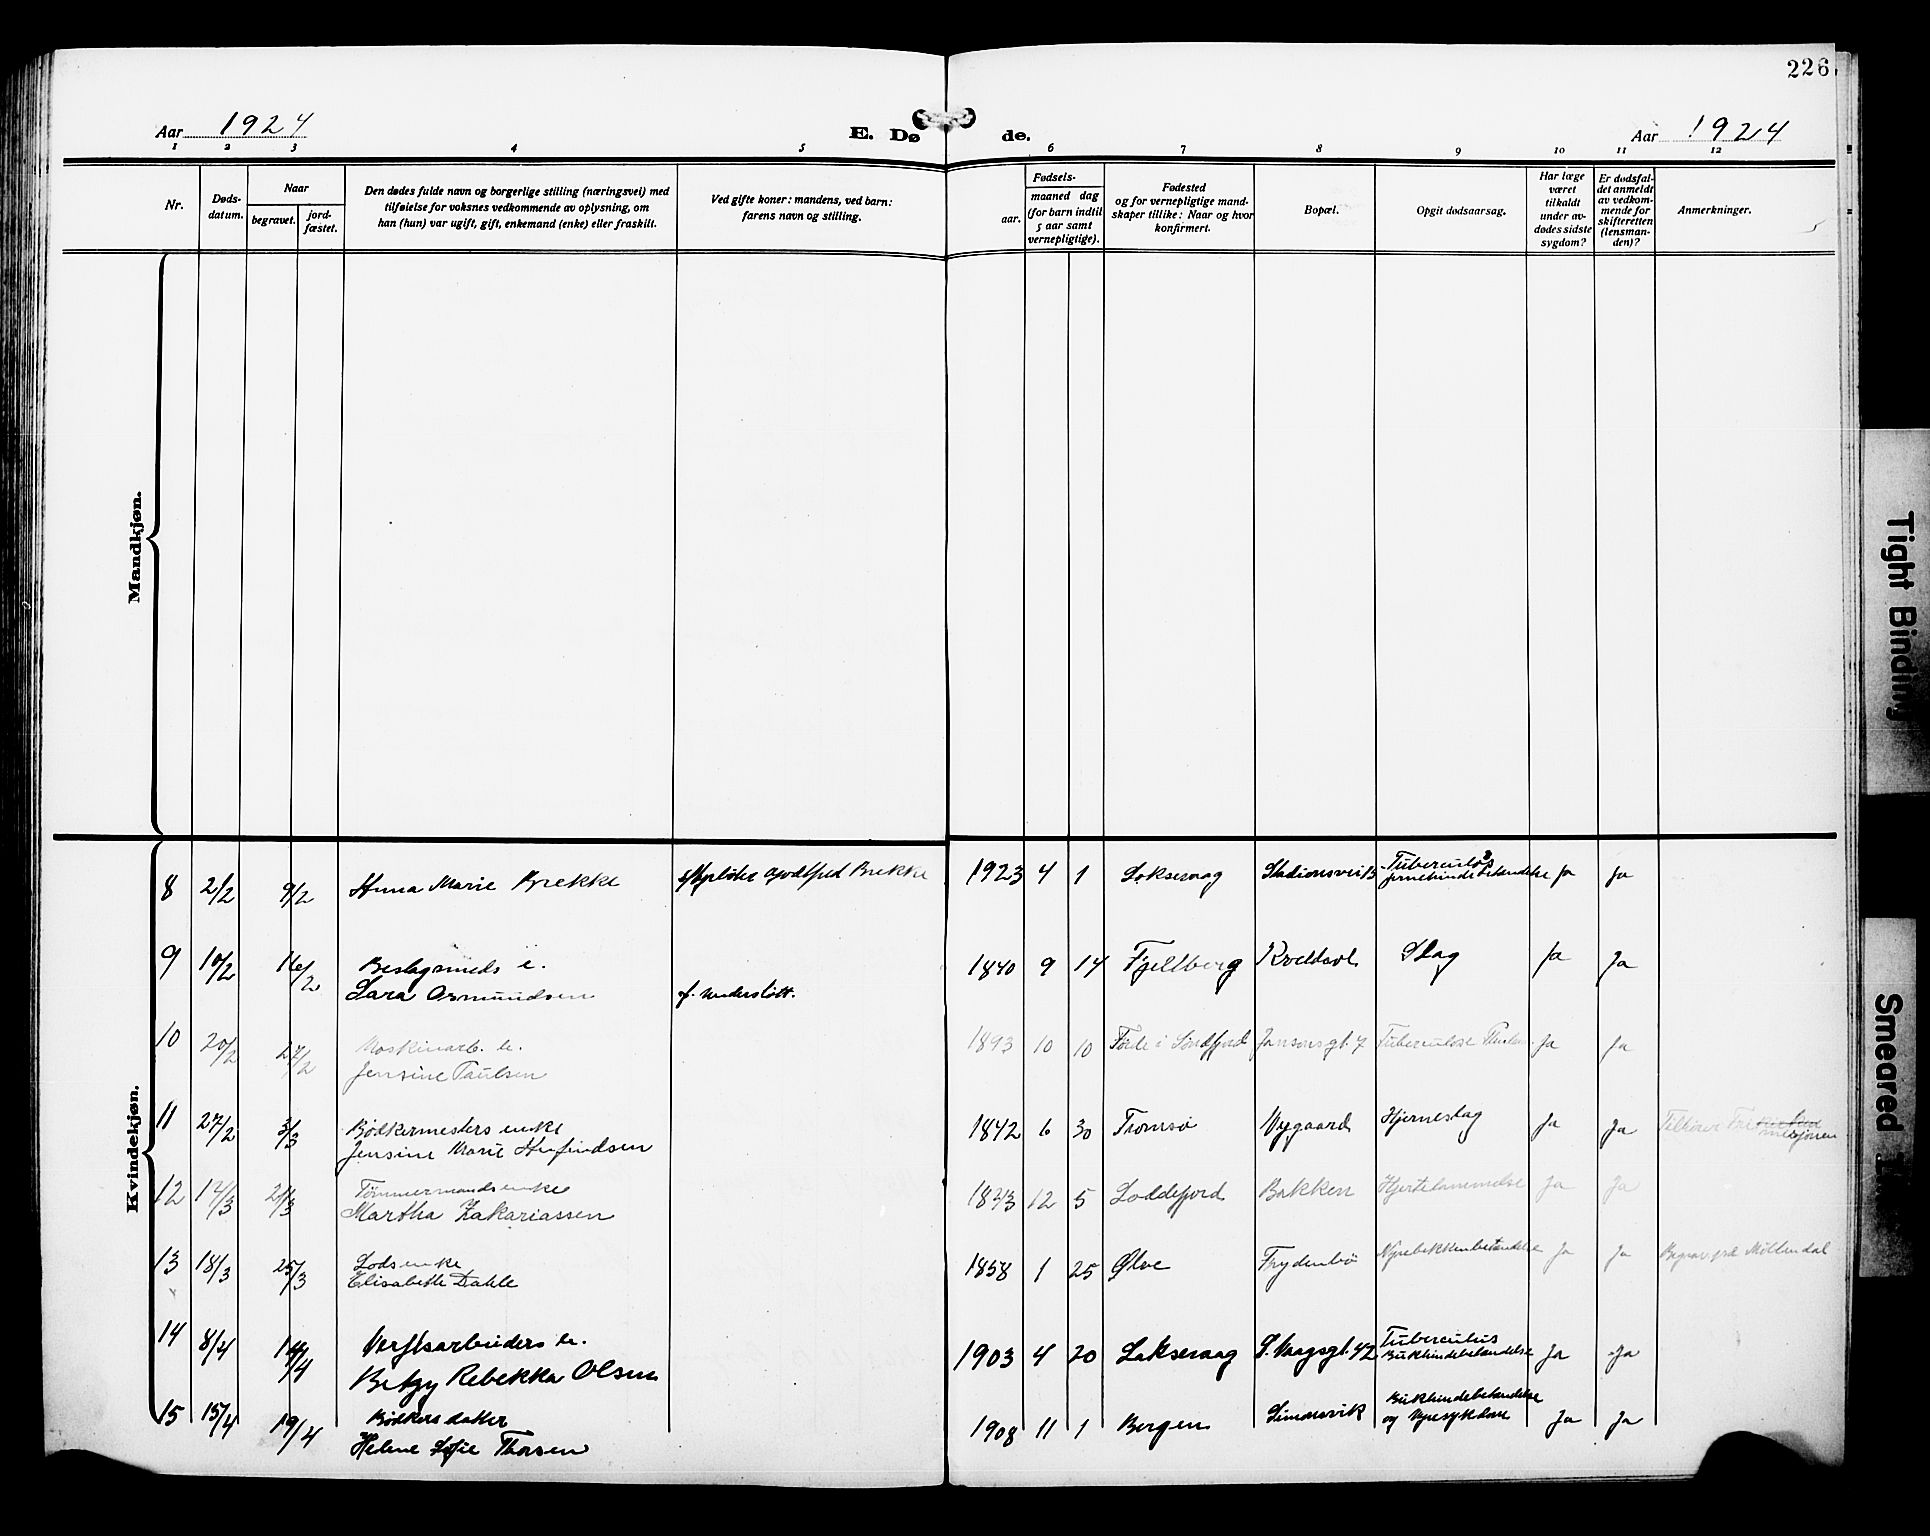 226
Aar 1924
E. Dø
de.
Aar 1924
1 2 3 4 5 6 7 8 9 10 11 12
Nr.
Døds-
datum.
Naar
begravet.
jord-
fæstet.
Den dødes fulde navn og borgerlige stilling (næringsvei) med
tilføielse for voksnes vedkommende av oplysning, om
han (hun) var ugift, gift, enkemand (enke) eller fraskilt.
Ved gifte koner: mandens, ved barn:
farens navn og stilling.
Fødsels-
aar.
maaned dag
(for barn indtil
5 aar samt
vernepligtige).
Fødested
og for vernepligtige mand-
skaper tillike: Naar og hvor
konfirmert.
Bopæl.
Opgit dødsaarsag.
Har læge
været
tilkaldt
under av-
dødes sidste
sygdom?
Er dødsfal-
det anmeldt
av vedkom-
mende for
skifteretten
(lensman-
den)?
Anmerkninger.
Mandkjøn.
Kvindekjøn.
8 2/2 9/2 Anna Marie Brekke Godtfred Brekke 1923 4 1 Laksevaag Stadionsvei 13 Tuberculøs
hjernehindebetændelse Ja Ja
9 10/2 16/2 Beslagsmeds e.
Lara Osmundsen f. understøtt. 1840 9 14 Fjellberg Kveldsol Slag Ja Ja
10 20/2 27/2 Maskinarb. h.
Jensine Paulsen 1893 10 10 Førde i Søndfjord Jansonsgt. 7 Tuberculose Ja Ja
11 27/2 3/3 Bødkermesters enke
Jensine Marie Arnfindsen 1842 6 30 Tromsø Nygaard Hjerneslag Ja Ja Tilhører Frikirken
misjonen
12 14/3 21/3 Tømmermands enke
Martha Zakariassen 1833 12 5 Loddefjord Bakken Hjertelammelse Ja Ja
13 18/3 25/3 Lods enke
Elisabeth Dahle 1858 1 25 Ølve Frydenbø Nyrebekkenbetændelse Ja Ja Begrav. paa Møllendal
14 8/4 14/4 Verftsarbeiders h.
Betzy Rebekka Olsen 1903 4 20 Laksevaag S. Vaagsgt. 42 Tuberculøs
Bukhindebetændelse Ja Ja
15 15/4 19/4 Bødkers datter
Helene Sofie Thorsen 1908 11 1 Bergen Simonsvik Bukhindebetændelse
og Nyresykdom Ja Ja
Tight Binding
Smeared